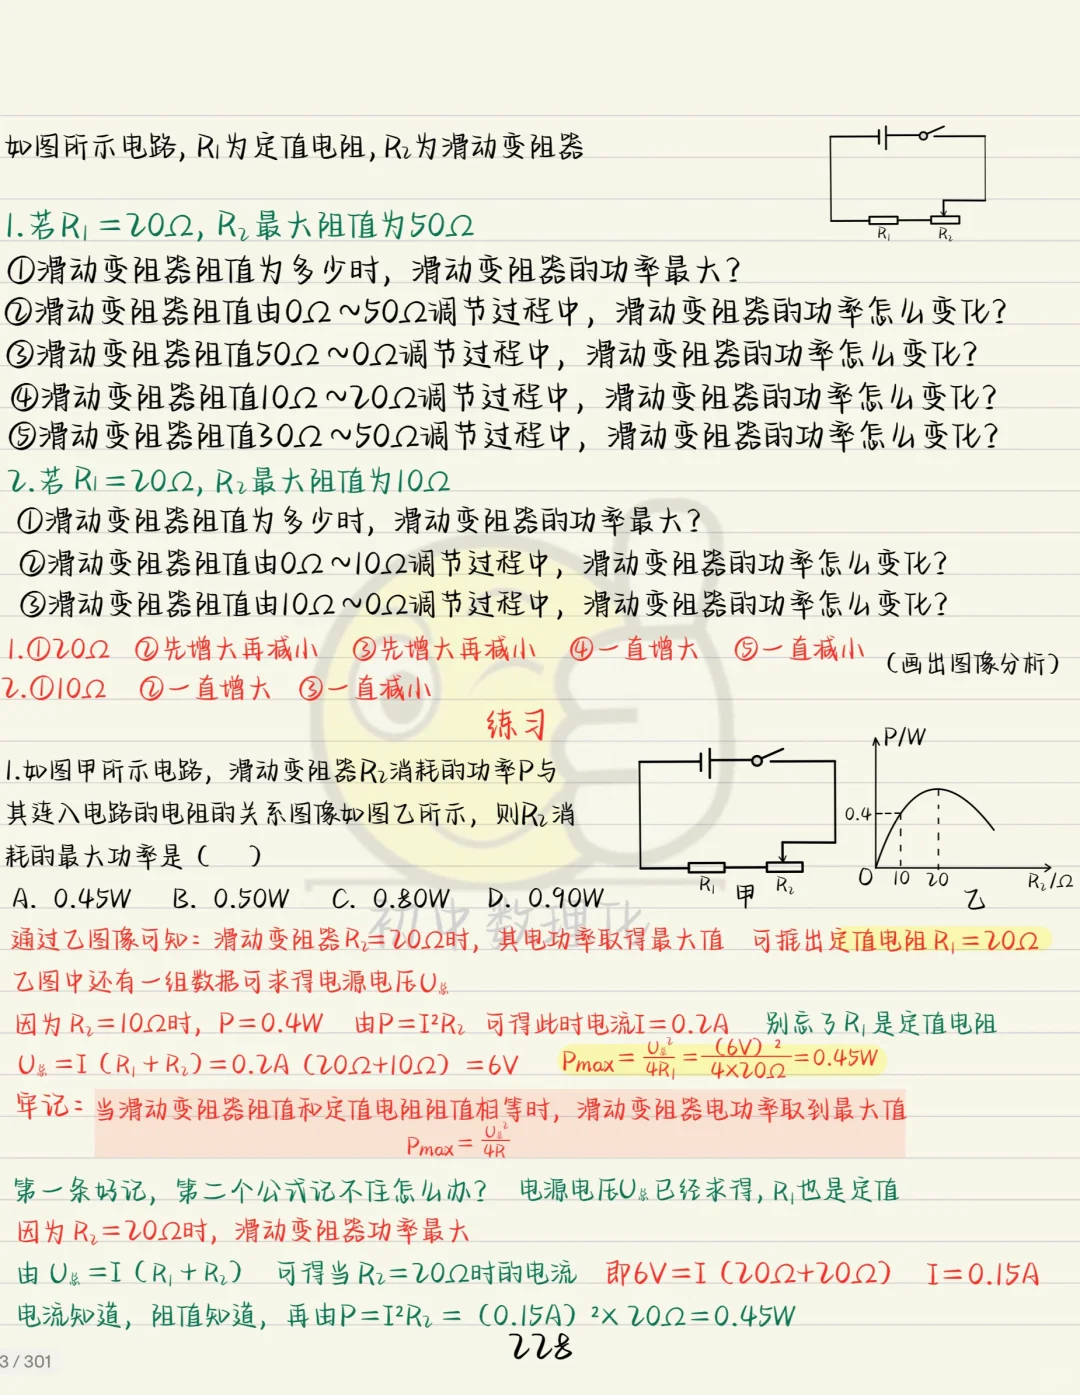 如图所示电路, R₁为定值电阻, R₂为滑动变阻器
R₁ R₂
1.若R₁=20Ω, R₂最大阻值为50Ω
①滑动变阻器阻值为多少时, 滑动变阻器的功率最大?
②滑动变阻器阻值由0Ω~50Ω调节过程中, 滑动变阻器的功率怎么变化?
③滑动变阻器阻值50Ω~0Ω调节过程中, 滑动变阻器的功率怎么变化?
④滑动变阻器阻值10Ω~20Ω调节过程中, 滑动变阻器的功率怎么变化?
⑤滑动变阻器阻值30Ω~50Ω调节过程中, 滑动变阻器的功率怎么变化?
2.若R₁=20Ω, R₂最大阻值为10Ω
①滑动变阻器阻值为多少时, 滑动变阻器的功率最大?
②滑动变阻器阻值由0Ω~10Ω调节过程中, 滑动变阻器的功率怎么变化?
③滑动变阻器阻值由10Ω~0Ω调节过程中, 滑动变阻器的功率怎么变化?
1.①20Ω ②先增大再减小 ③先增大再减小 ④一直增大 ⑤一直减小 (画出图像分析)
2.①10Ω ②一直增大 ③一直减小
练习
1.如图甲所示电路, 滑动变阻器R₂消耗的功率P与
其连入电路的电阻的关系图像如图乙所示, 则R₂消
耗的最大功率是 ( )
A. 0.45W B. 0.50W C. 0.80W D. 0.90W
R₁ 甲 R₂
P/W
0.4
0 10 20 R₂/Ω
乙
初中数理化
通过乙图像可知: 滑动变阻器R₂=20Ω时, 其电功率取得最大值 可推出定值电阻R₁=20Ω
乙图中还有一组数据可求得电源电压U总
因为R₂=10Ω时, P=0.4W 由P=I²R₂ 可得此时电流I=0.2A 别忘了R₁是定值电阻
U总=I (R₁+R₂)=0.2A (20Ω+10Ω) =6V Pmax=U总²/4R₁=(6V)²/4×20Ω=0.45W
牢记: 当滑动变阻器阻值和定值电阻阻值相等时, 滑动变阻器电功率取到最大值
Pmax=U总²/4R
第一条好记, 第二个公式记不住怎么办? 电源电压U总已经求得, R₁也是定值
因为R₂=20Ω时, 滑动变阻器功率最大
由U总=I (R₁+R₂) 可得当R₂=20Ω时的电流 即6V=I (20Ω+20Ω) I=0.15A
电流知道, 阻值知道, 再由P=I²R₂= (0.15A) ²×20Ω=0.45W
228
3 / 301